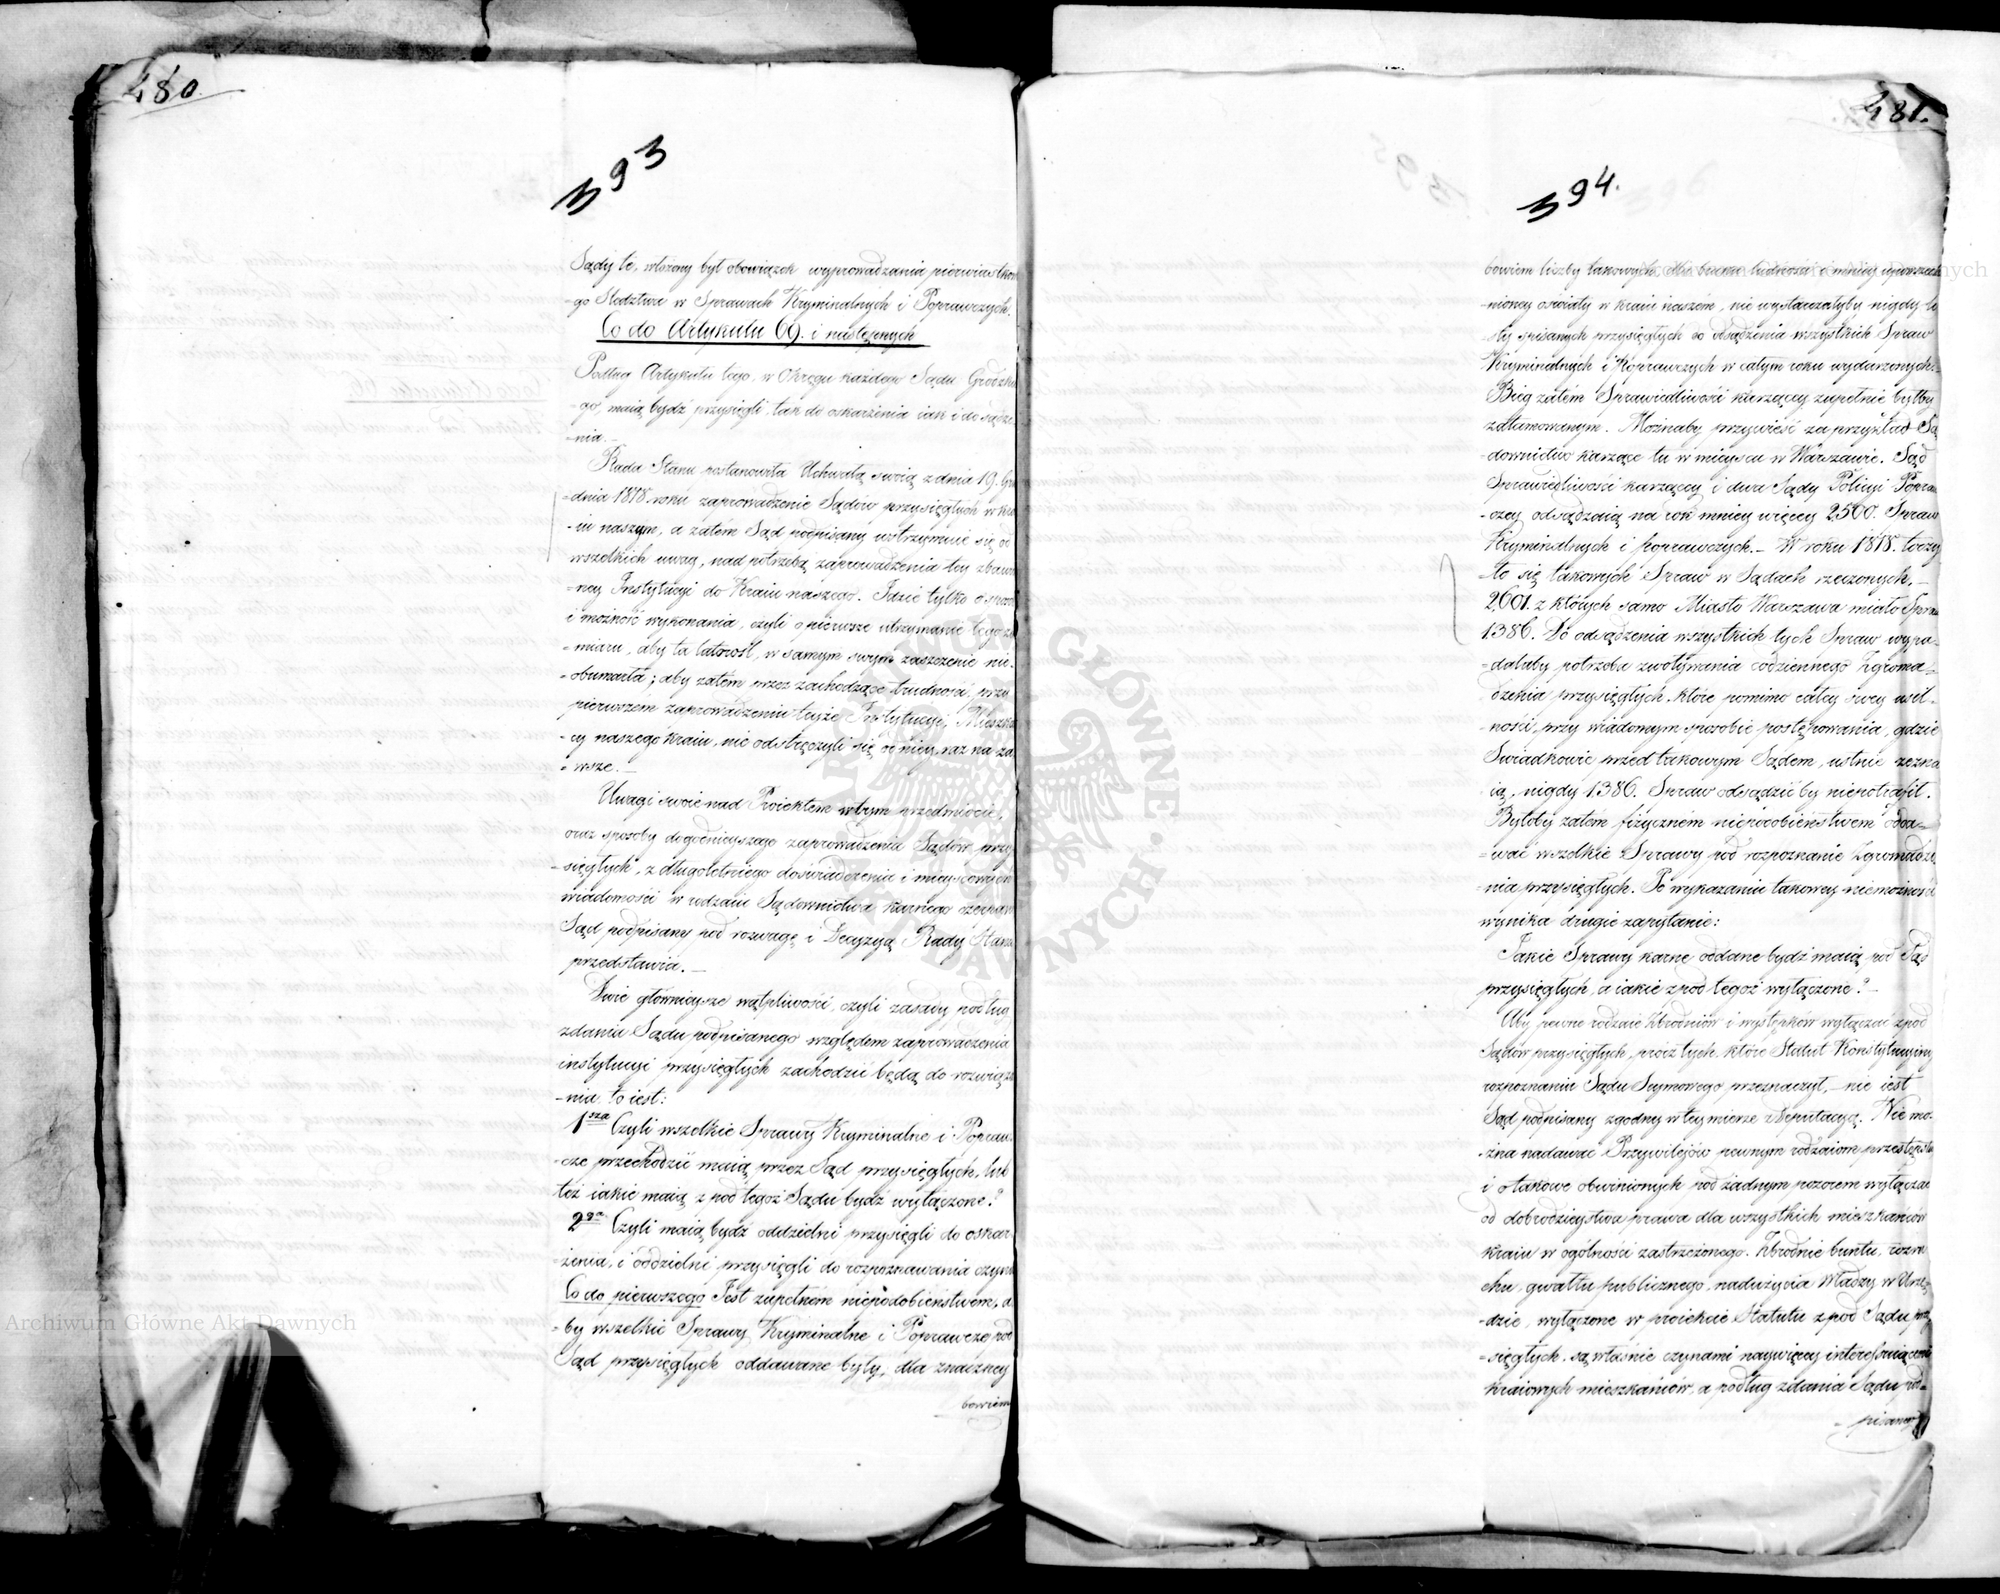 480.
393
Sądy te, włożony był obowiązek wyprowadzania pierwiastkowe
-go Śledztwa w Sprawach Kryminalnych i Poprawczych.
Co do Artykułu 69. i następnych
Podług Artykułu tego, w Okręgu każdego Sądu Grodzkie
-go, maią bydź przysięgli tak do oskarżenia iak i do sądze-
-nia.-
Rada Stanu postanowiła Uchwałą swoią z dnia 19. Gru
-dnia 1818. roku zaprowadzenie Sądów przysięgłych w kra
-iu naszym, a zatém Sąd podpisany wstrzymuie się od
wszelkich uwag, nad potrzebą zaprowadzenia tey zbawie
-ney Instytucyi do Kraiu naszego. Idzie tylko o sposób
i możność wykonania, czyli o pierwsze utrzymanie tego za
-miaru, aby ta latorośl, w samym swym zaszczepie nie-
-obumarła; aby zatém przez zachodzące trudności, przy
pierwszem zaprowadzeniu teyże Instytucyi, Mieszkań
-cy naszego kraiu, nie odstręczyli się od niey raz na za
-wsze.-
Uwagi swoie nad Proiektem w tym przedmiocie,
oraz sposoby dogodnieyszego zaprowadzenia Sądów przy
-sięgłych, z długoletniego doświadczenia i mieyscowych
wiadomości w rodzaiu Sądownictwa karnego czerpane
Sąd podpisany pod rozwagę i Decyzyą Rady Stanu
przedstawia.-
Dwie główneysze wątpliwości, czyli zasady podług
zdania Sądu podpisanego względem zaprowadzenia
instytucyi przysięgłych zachodzić będą do rozwiąza
-nia to iest:
1sza Czyli wszelkie Sprawy Kryminalne i Popraw-
-cze przechodzić maią przez Sąd przysięgłych, lub
też iakie maią z pod tegoż Sądu bydź wyłączone?
2ga Czyli maią bydź oddzielni przysięgli do oskar-
-żenia, i oddzielni przysięgli do rozpoznawania czynu
Co do pierwszego Jest zupełnem niepodobieństwem, a-
-by wszelkie Sprawy Kryminalne i Poprawcze pod
Sąd przysięgłych oddawane były, dla znaczney
bowiem
481.
394.
bowiem liczby takowych, dla braku ludności i mniey upowszech
-nioney oświaty w kraiu naszém, nie wystarczałyby nigdy li-
-sty spisanych przysięgłych do odsądzenia wszystkich Spraw
Kryminalnych i Poprawczych w całym roku wydarzonych.-
Bieg zatém Sprawiedliwości karzącey zupełnie byłby
zatamowanym. Możnaby przywieść za przykład Są
downictwo karzące tu w mieyscu w Warszawie. Sąd
Sprawiedliwości karzącey i dwa Sądy Policyi Popraw
-czey odsądzaią na rok mniey więcey 2500. Spraw
Kryminalnych i poprawczych.- W roku 1818. toczy
-ło się takowych Spraw w Sądach rzeczonych.-
2601. z których samo Miasto Warszawa miało Spraw
1386. Do odsądzenia wszystkich tych Spraw wypa-
-dałaby potrzeba zwoływania codziennego Zgroma-
dzenia przysięgłych, które pomimo całey swey usil-
-ności, przy wiadomym sposobie postępowania, gdzie
Świadkowie przed takowym Sądem, ustnie zezna
-ią, nigdy 1386. Spraw odsądzić by niepotrafił.
Byłoby zatem fizycznem niepodobieństwem odda-
-wać wszelkie Sprawy pod rozpoznanie Zgromadze
-nia przysięgłych. Po wykazaniu takowey niemożności
wynika drugie zapytanie:
Jakie Sprawy karne oddane bydź maią pod Sąd
przysięgłych, a iakie z pod tegoż wyłączone?-
Aby pewne rodzaie Zbrodniów i występków wyłączać z pod
Sądów przysięgłych, prócz tych, które Statut Konstytucyiny
rozpoznaniu Sądu Seymowego przeznaczył,- nie iest
Sąd podpisany zgodny w tey mierze z Deputacyą. Nie mo-
-żna nadawać Przywilejów pewnym rodzaiom przestępstw
i o takowe obwinionych pod żadnym pozorem wyłączać
od dobrodzieystwa prawa dla wszystkich mieszkańców
kraiu w ogólności zastrzeżonego. Zbrodnie buntu, rozru
chu, gwałtu publicznego, nadużycia Władzy w Urzę
-dzie, wyłączone w proiekcie Statutu z pod Sądu przy
-sięgłych, są właśnie czynami naywięcey interessuiącemi
kraiowych mieszkańców, a podług zdania Sądu pod-
-pisanego